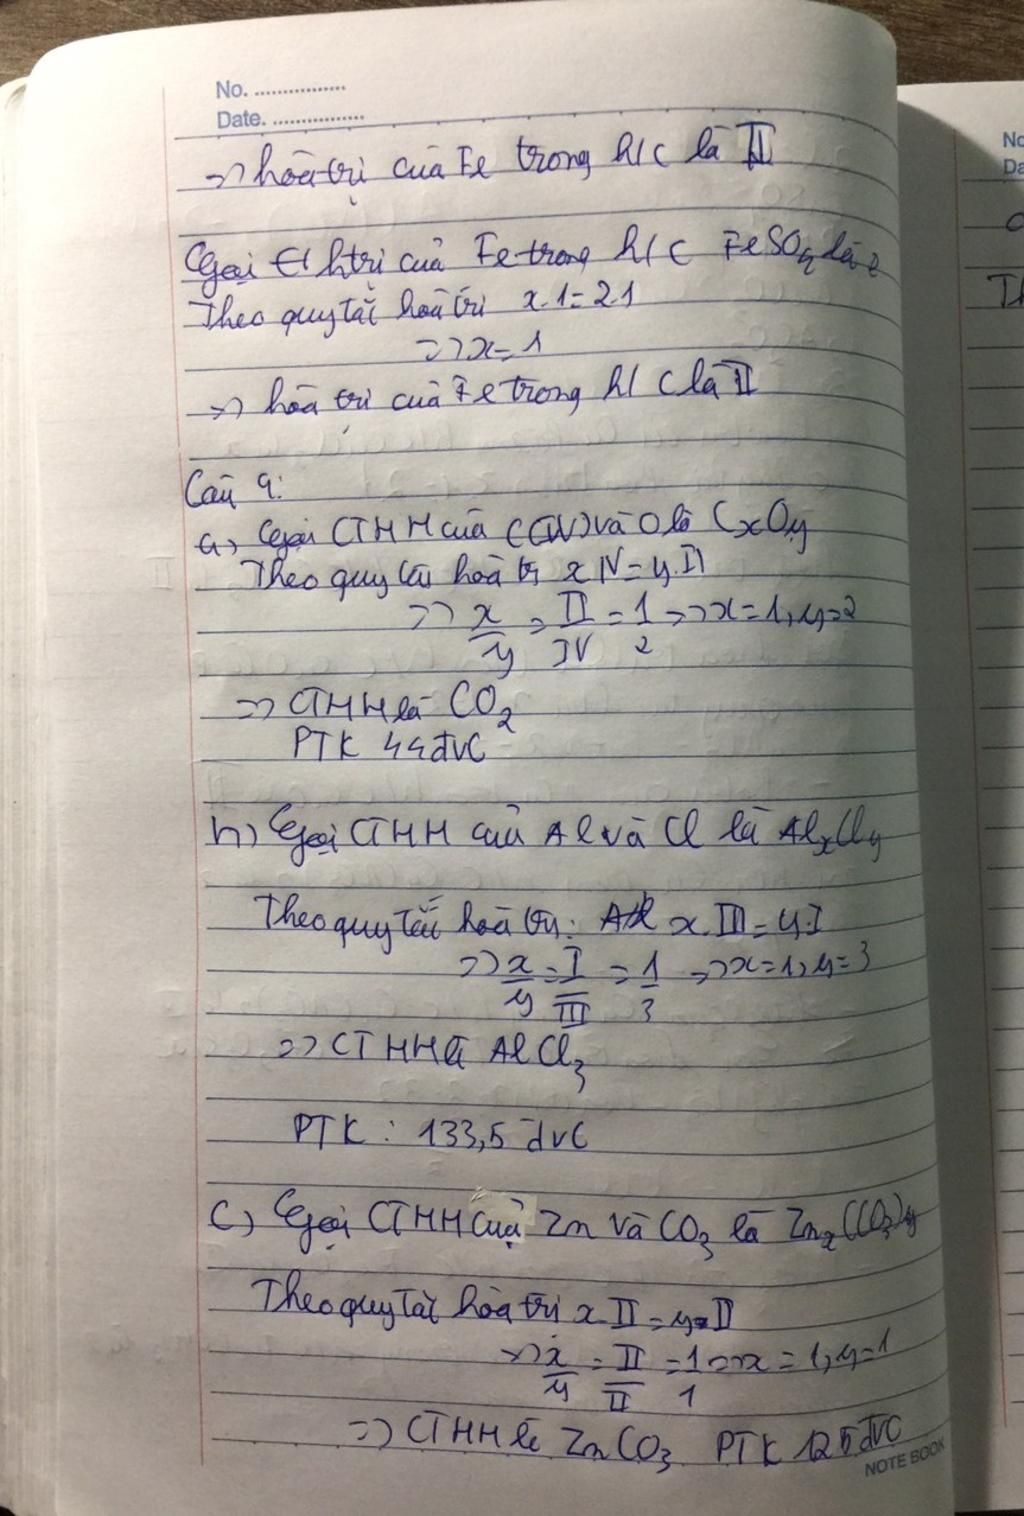 No. ................
Date. ................
=> hoá trị của Fe trong h/c là II
Gọi h trị của Fe trong h/c FeSO4 là
Theo quy tắc hoá trị x.1=2.1
=> x=1
=> hoá trị của Fe trong h/c là II
Câu 9:
a) Gọi CTHH của C(IV) và O là CxOy
Theo quy tắc hoá trị x IV = y.II
=> x/y = II/IV = 1/2 => x=1, y=2
=> CTHH là CO2
PTK 44 đvC
b) Gọi CTHH của Al và Cl là AlxCly
Theo quy tắc hoá trị: x.III = y.I
=> x/y = I/III = 1/3 => x=1, y=3
=> CTHH là AlCl3
PTK : 133,5 đvC
c) Gọi CTHH của Zn và CO3 là Znx(CO3)y
Theo quy tắc hoá trị x.II = y.II
=> x/y = II/II = 1/1 => x = 1, y=1
=> CTHH là ZnCO3 PTK 125 đvC
NOTE BOOK
No
Da
Th